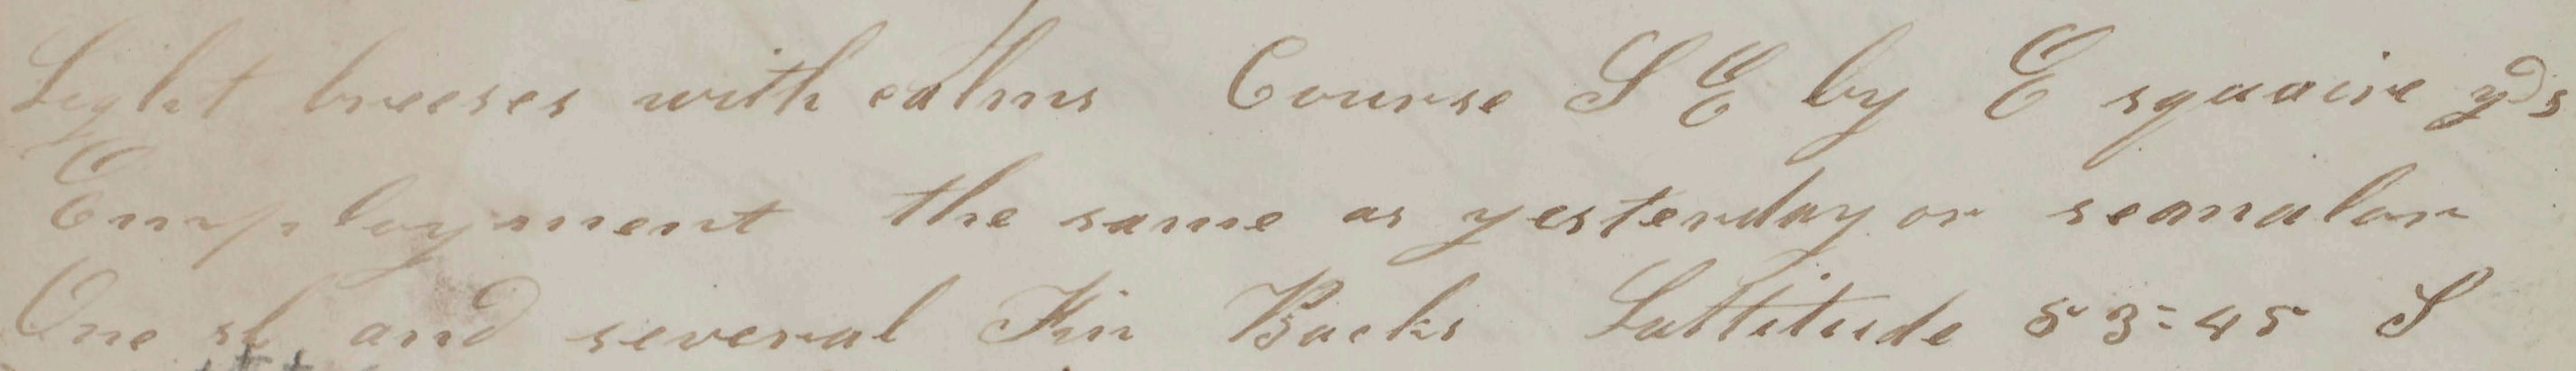 Light breeses with calms Course S E by E squaire yds
Employment the same as yesterday or semalar
One sl and several Fin Backs Lattitude 53=45 S